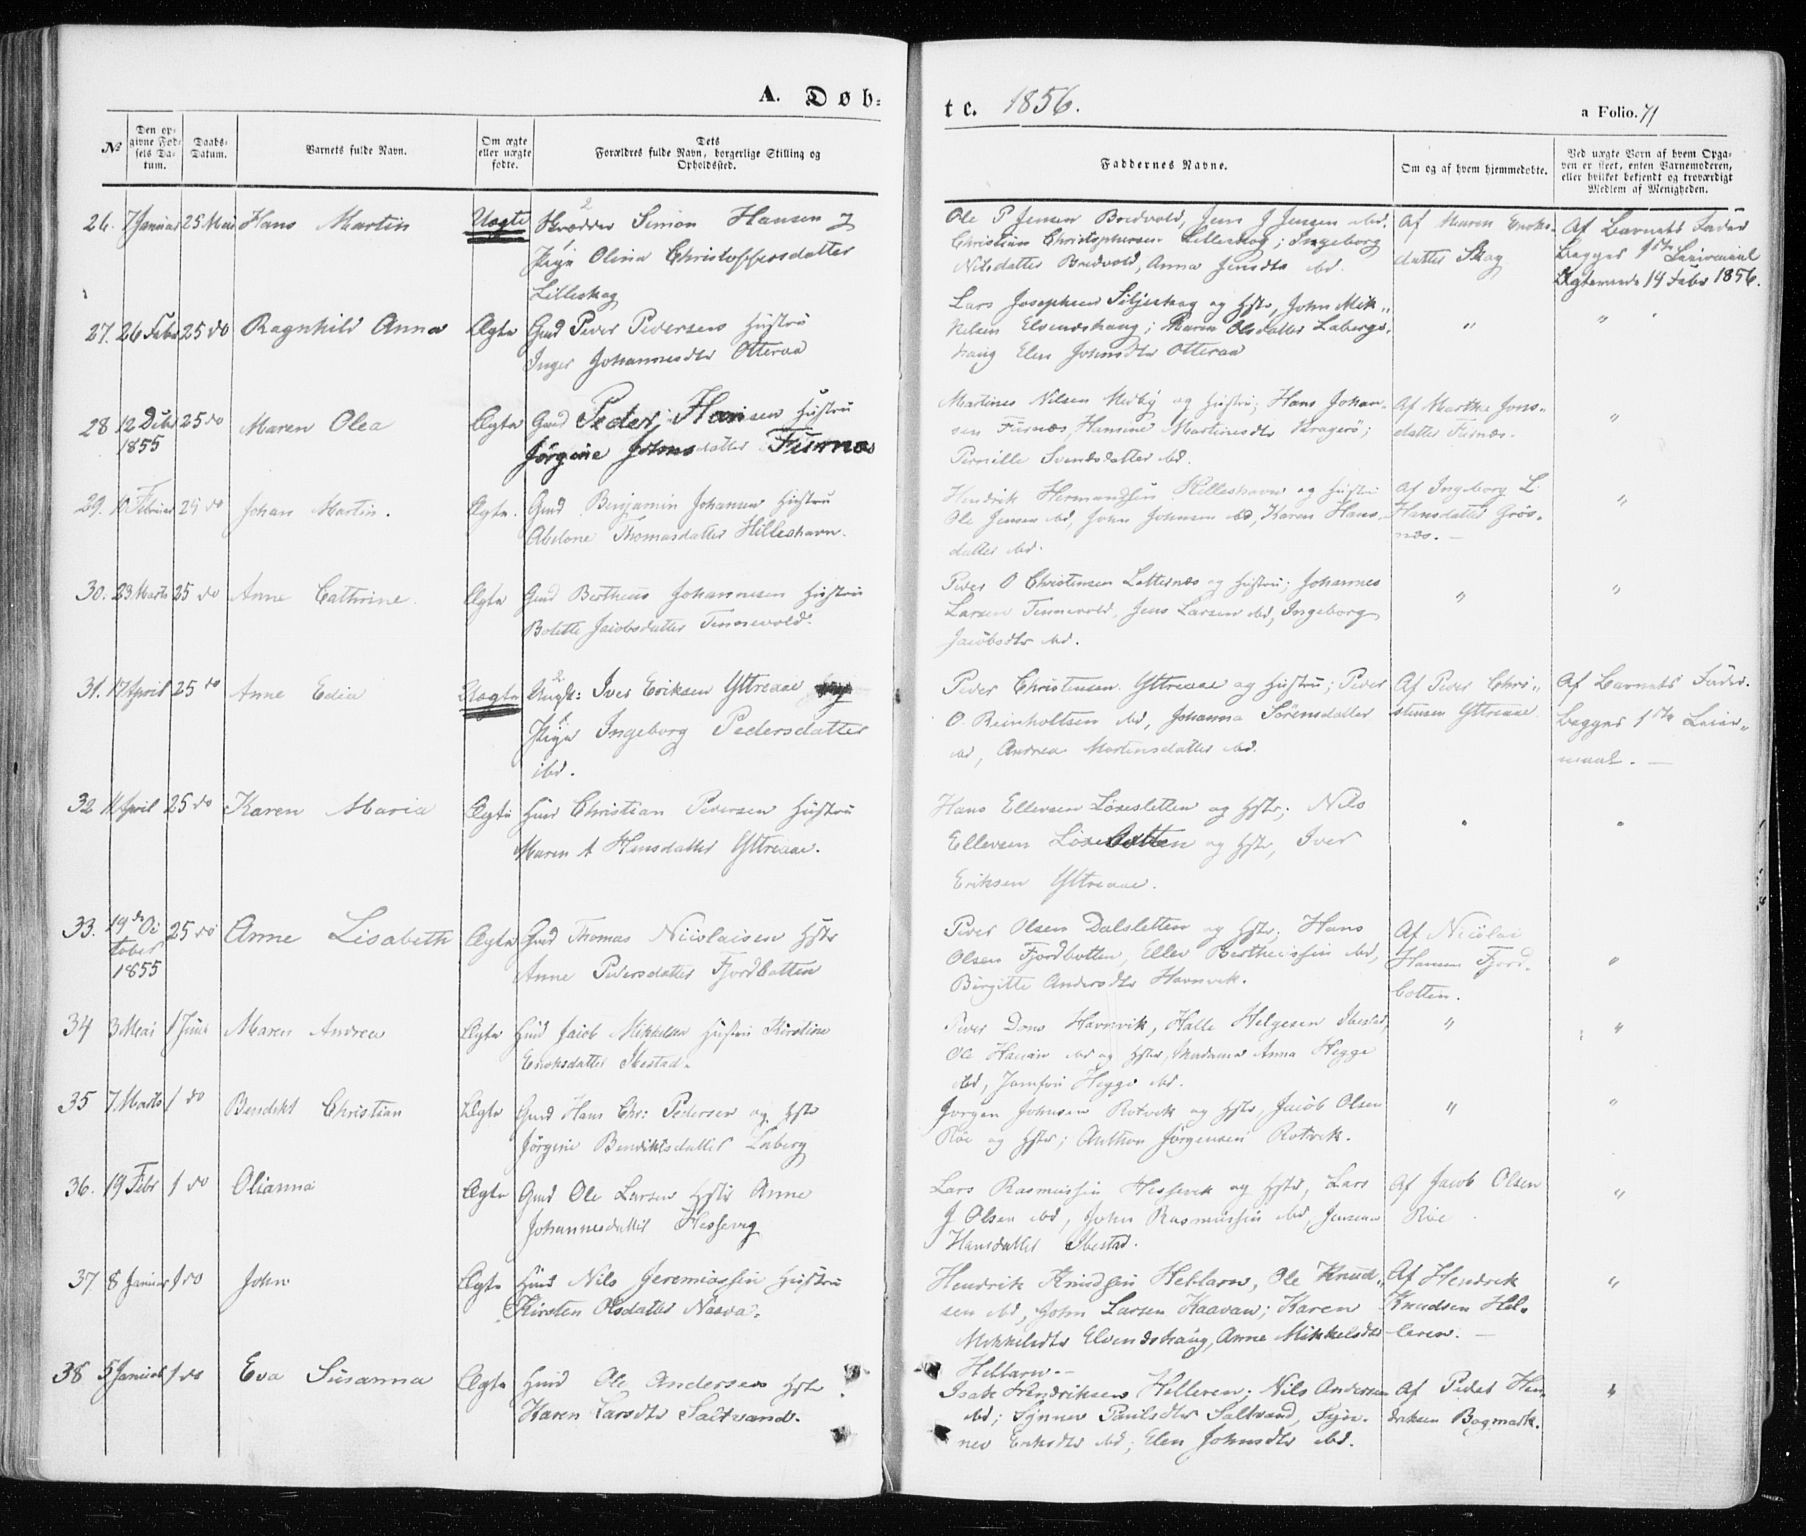 A. Døb:
te. 1856.
a Folio. 71
№
Den opgivne Fødsels Datum.
Daabs-Datum.
Barnets fulde Navn.
Om ægte eller uægte fødte.
Dets Forældres fulde Navn, borgerlige Stilling og Opholdssted.
Faddernes Navne.
Om og af hvem hjemmedøbte.
Ved uægte Børn af hvem Opgaven er skeet, enten Barnemoderen, eller hvilket bekjendt og troværdigt Medlem af Menigheden.
26. 7 Januar 25 Mai Hans Martin Uægte Skrædder Simon Hansen J
Pige Olina Christoffersdatter
Lilleskog
Ole P Jensen Bredvold, Jens J Jensen ibd.
Christian Christophersen Lilleskog; Ingeborg
Nilsdatter Bredvold, Anna Jensdtr ibd.
Af Maren Eriks-
datter Skog
Af Barnets Fader
Begges 1ste Leiermaal
Ægteviede 14 Febr 1856.
27. 26 Febr 25 do Ragnhild Anna Ægte Gmd Peder Pedersen Hustru
Inger Johannesdtr Otteraa
Lars Josephsen Siljeskog og Hstr, John Mik-
kelsen Elvenæshaug; Maren Olsdatter Labergs-
haug Elen Johnsdtr Otteraa
"
"
28 12 Debr 1855 25 do Maren Olea Ægte Gmd Peder Hansen Hustru
Jørgine Johnsdatter Furnæs
Martines Nilsen Medby og Hustru; Hans Johan-
sen Furnæs, Hansine Martinesdtr Kragerö;
Pernille Svendsdatter ibd.
Af Marthe Jons-
datter Furnæs.
"
29. 10 Februar 25 do Johan Martin. Ægte. Gmd Benjamin Johansen Hustru
Abelone Thomasdatter Hilleshavn.
Hendrik Hermandsen Hilleshavn og Hustru
Ole Jensen ibd, John Johnsen ibd, Karen Hans-
datter ibd.
Af Ingeborg L.
Hansdatter Grøs-
næs.
"
30. 23 Marts 25 do Anne Cathrine. Ægte Gmd Bertheus Johannesen Hustru
Bolette Jacobsdatter Tennevold.
Peder O Christensen Lotternæs og Hustru; Johannes
Larsen Tennevold, Jens Larsen ibd, Ingeborg
Jacobsdtr ibd.
"
"
31. 17 April 25 do Anne Edia Uægte Ungk: Iver Eriksen Yttreaae
Pige Ingeborg Pedersdatter
ibd.
Peder Christensen Yttreaae og Hustru; Peder
O. Reinholtsen ibd, Johanna Sörensdatter
ibd, Andrea Martinsdatter ibd.
Af Peder Chri-
stensen Yttreaae
Af Barnets Fader.
Begges 1ste Leier-
maal.
32 11 April 25 do Karen Maria Ægte Hmd Christian Pedersen Hustru
Maren A Hansdatter Yttreaae.
Hans Ellevsen Løvesletten og Hstr; Nils
Ellevsen Løvebotten og Hstr, Iver
Eriksen Yttreaae.
"
"
33. 19de October 1855 25 do Anne Lisabeth Ægte Gmd Thomas Nicolaisen Hstr
Anne Pedersdatter Fjordbotten
Peder Olsen Dalsletten og Hstr; Hans
Olsen Fjordbotten, Ellev Bertheussen ibd,
Birgitte Andersdtr Havnvik.
Af Nicolai
Hansen Fjord-
botten.
"
34 3 Mai 1 Juni Maren Andrea Ægte Hmd Jacob Mikkelsen Hustru Kirstine
Enoksdatter Ibestad.
Peder Dons Havnvik, Halle Helgesen Ibestad,
Ole Hanssen ibd og Hstr, Madame Anna Hegge
ibd, Jomfru Hegge ibd.
"
"
35 7 Marts 1 do Bendikt Christian Ægte Gmd Hans Chr: Pedersen og Hstr
Jörgine Bendiktsdatter Laberg
Jørgen Johnsen Rotvik og Hstr, Jacob Olsen
Röe og Hstr; Anthon Jørgensen Rotvik.
"
"
36. 19 Febr 1 do Olianna Ægte Gmd Ole Larsen Hstr Anne
Johannesdatter Hessevig
Lars Rasmussen Hessevik og Hstr, Lars
J Olsen ibd, John Rasmussen ibd,
Hansdatter Ibestad.
Af Jacob Olsen
Röe
"
37. 8 Januar 1 do John Ægte Hmd Nils Jeremiassen Hustru
Kirsten Olsdatter Naava.
Hendrik Knudsen Hellarn, Ole Knud-
sen ibd, John Larsen Kaavan; Karen
Mikkelsdtr Elvendshaug, Anne Mikkelsdtr
Hellarn.
Af Hendrik
Knudsen Hel-
leren.
"
38 5 Januar 1 do Eva Susanna Ægte Hmd Ole Andersen Hstr
Karen Larsdtr Saltvand.
Isak Hendriksen Helleren; Nils Andersen
ibd; Synnev Paulsdtr Saltvand, Syn-
nev Eriksdtr ibd; Elen Johnsdtr ibd.
Af Peder Hen-
driksen Bogmark.
"